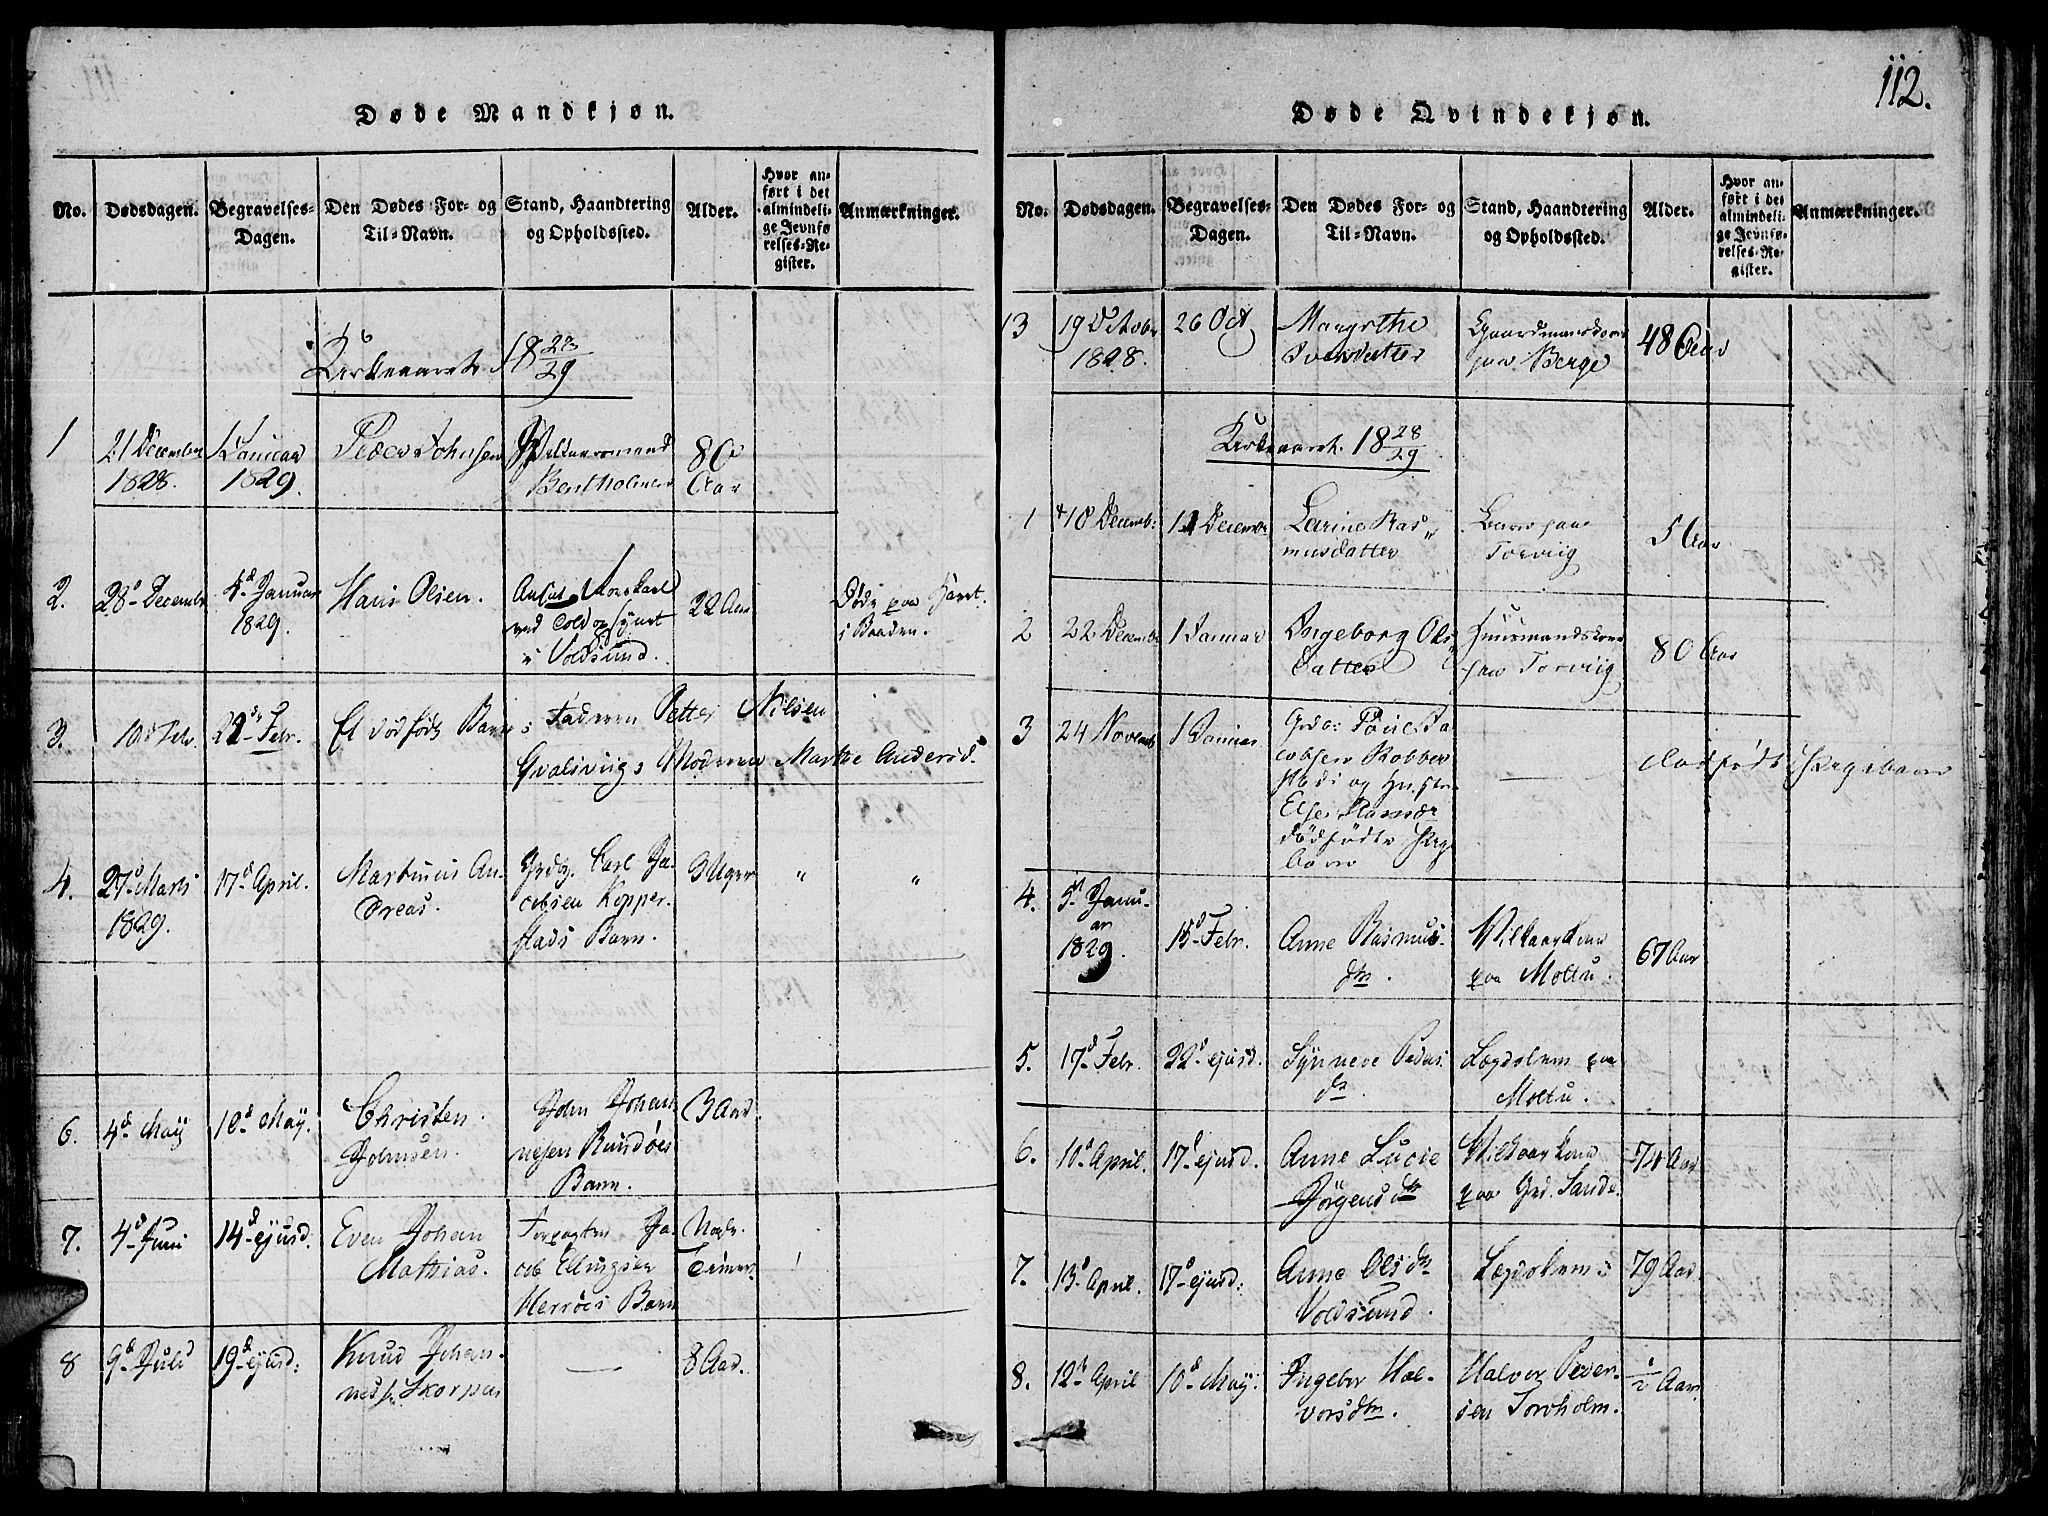 112.
Døde Mandkjøn.
No. Dødsdagen. Begravelses-Dagen. Den Dødes For- og Til-Navn. Stand, Haandtering og Opholdssted. Alder. Hvor anført i det almindelige Jevnførelses-Register. Anmærkninger.
Kirkeaaret 18 28/29
1 21 December 1828. 1 Januar 1829. Peder Johnsen 80 Aar
2. 28d December 4d Januar 1829. Hans Olsen. ved Told og i Voldsund. 22 Aar Døde paa Havet i Baaden.
3. 10d Febr. 22d Febr. Et dødfødt Barn Faderen Petter Nilsen
Moderen Marthe Andersd.
4. 27d Marts 1829. 17d April. Martinus Andreas. Grdbr. Carl Jacobsen Kopperstads Barn. 3 Uger " "
6. 4d May 10d May. Christen Johnsen. John Johannesen Rundöes Barn. 3 Aar.
7. 4d Juni 14d ejusd. Even Johan Mathias. Forpagter Jacob Ellingsen Herröes Barn
8 9d Juli 19d ejusd: Knud Johannes s. Skorpen — 8 Aar.
Døde Qvindekjøn.
No. Dødsdagen. Begravelses-Dagen. Den Dødes For- og Til-Navn. Stand, Haandtering og Opholdssted. Alder. Hvor anført i det almindelige Jevnførelses-Register. Anmærkninger.
13 19 October 1828. 26 Oct Margrethe Gaardmandskone paa Berge 48 Aar
Kirkeaaret 18 28/29
1 10 Decemb: 11 Decembr Larine Rasmusdatter Barn paa Torviig 5 Aar
2 22 Decembr 1 Januar Ingeborg Olsdatter Huusmandskone paa Torviig 80 Aar
3 24 Novemb 1 Januar Poul Jacobsen og dödfödte — dödfödt
4. 5d Januar 1829. 15d Febr. Anne Rasmusdtr. Vilkaarskone paa Moltu. 67 Aar
5. 17d Febr. 22d ejusd. Synneve Peders dr. Lægdslem paa Moltu.
6. 10d April. 17d ejusd. Anne Lucie Jörgensdtr Vilkaarskone paa Grd. Sande. 74 Aar
7. 13d April. 17d ejusd: Anne Olsdtr Voldsund. Lægdslem 79 Aar
8. 12d April 10d May. Ingeber Halvorsdtr. Halvor Pedersen Torvholm. 1/2 Aar